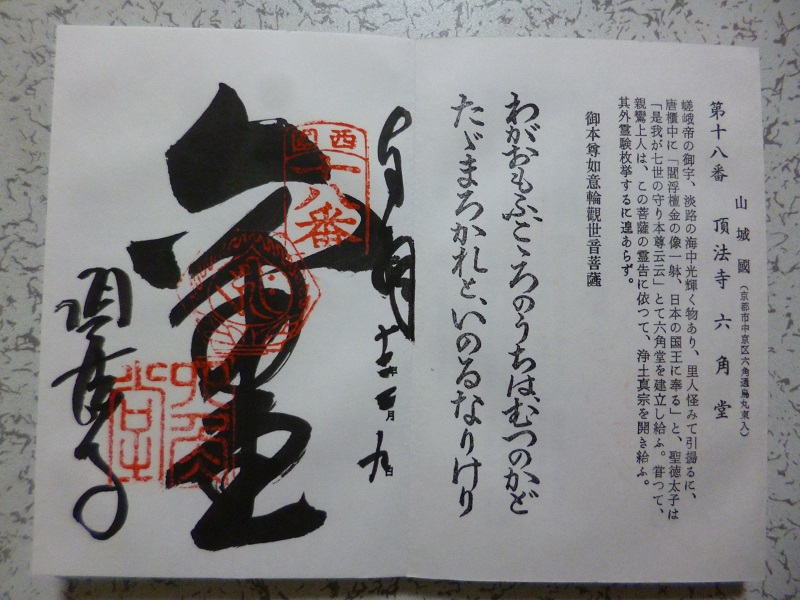 山城國（京都市中京区六角通烏丸東入）
第十八番 頂法寺六角堂
嵯峨帝の御宇、淡路の海中光輝く物あり、里人怪みて引揚るに、
唐櫃中に「閻浮檀金の像一躰、日本の国王に奉る」と、聖徳太子は
「是我が七世の守り本尊云云」とて六角堂を建立し給ふ。甞つて、
親鸞上人は、この菩薩の霊告に依つて、浄土真宗を開き給ふ。
其外霊験枚挙するに遑あらず。
御本尊如意輪觀世音菩薩
わがおもふこゝろのうちは、むつのかど
たゞまろかれと、いのるなりけり
奉拝
年 月 九日
西國
十八番
六角堂
頂法寺
六角堂